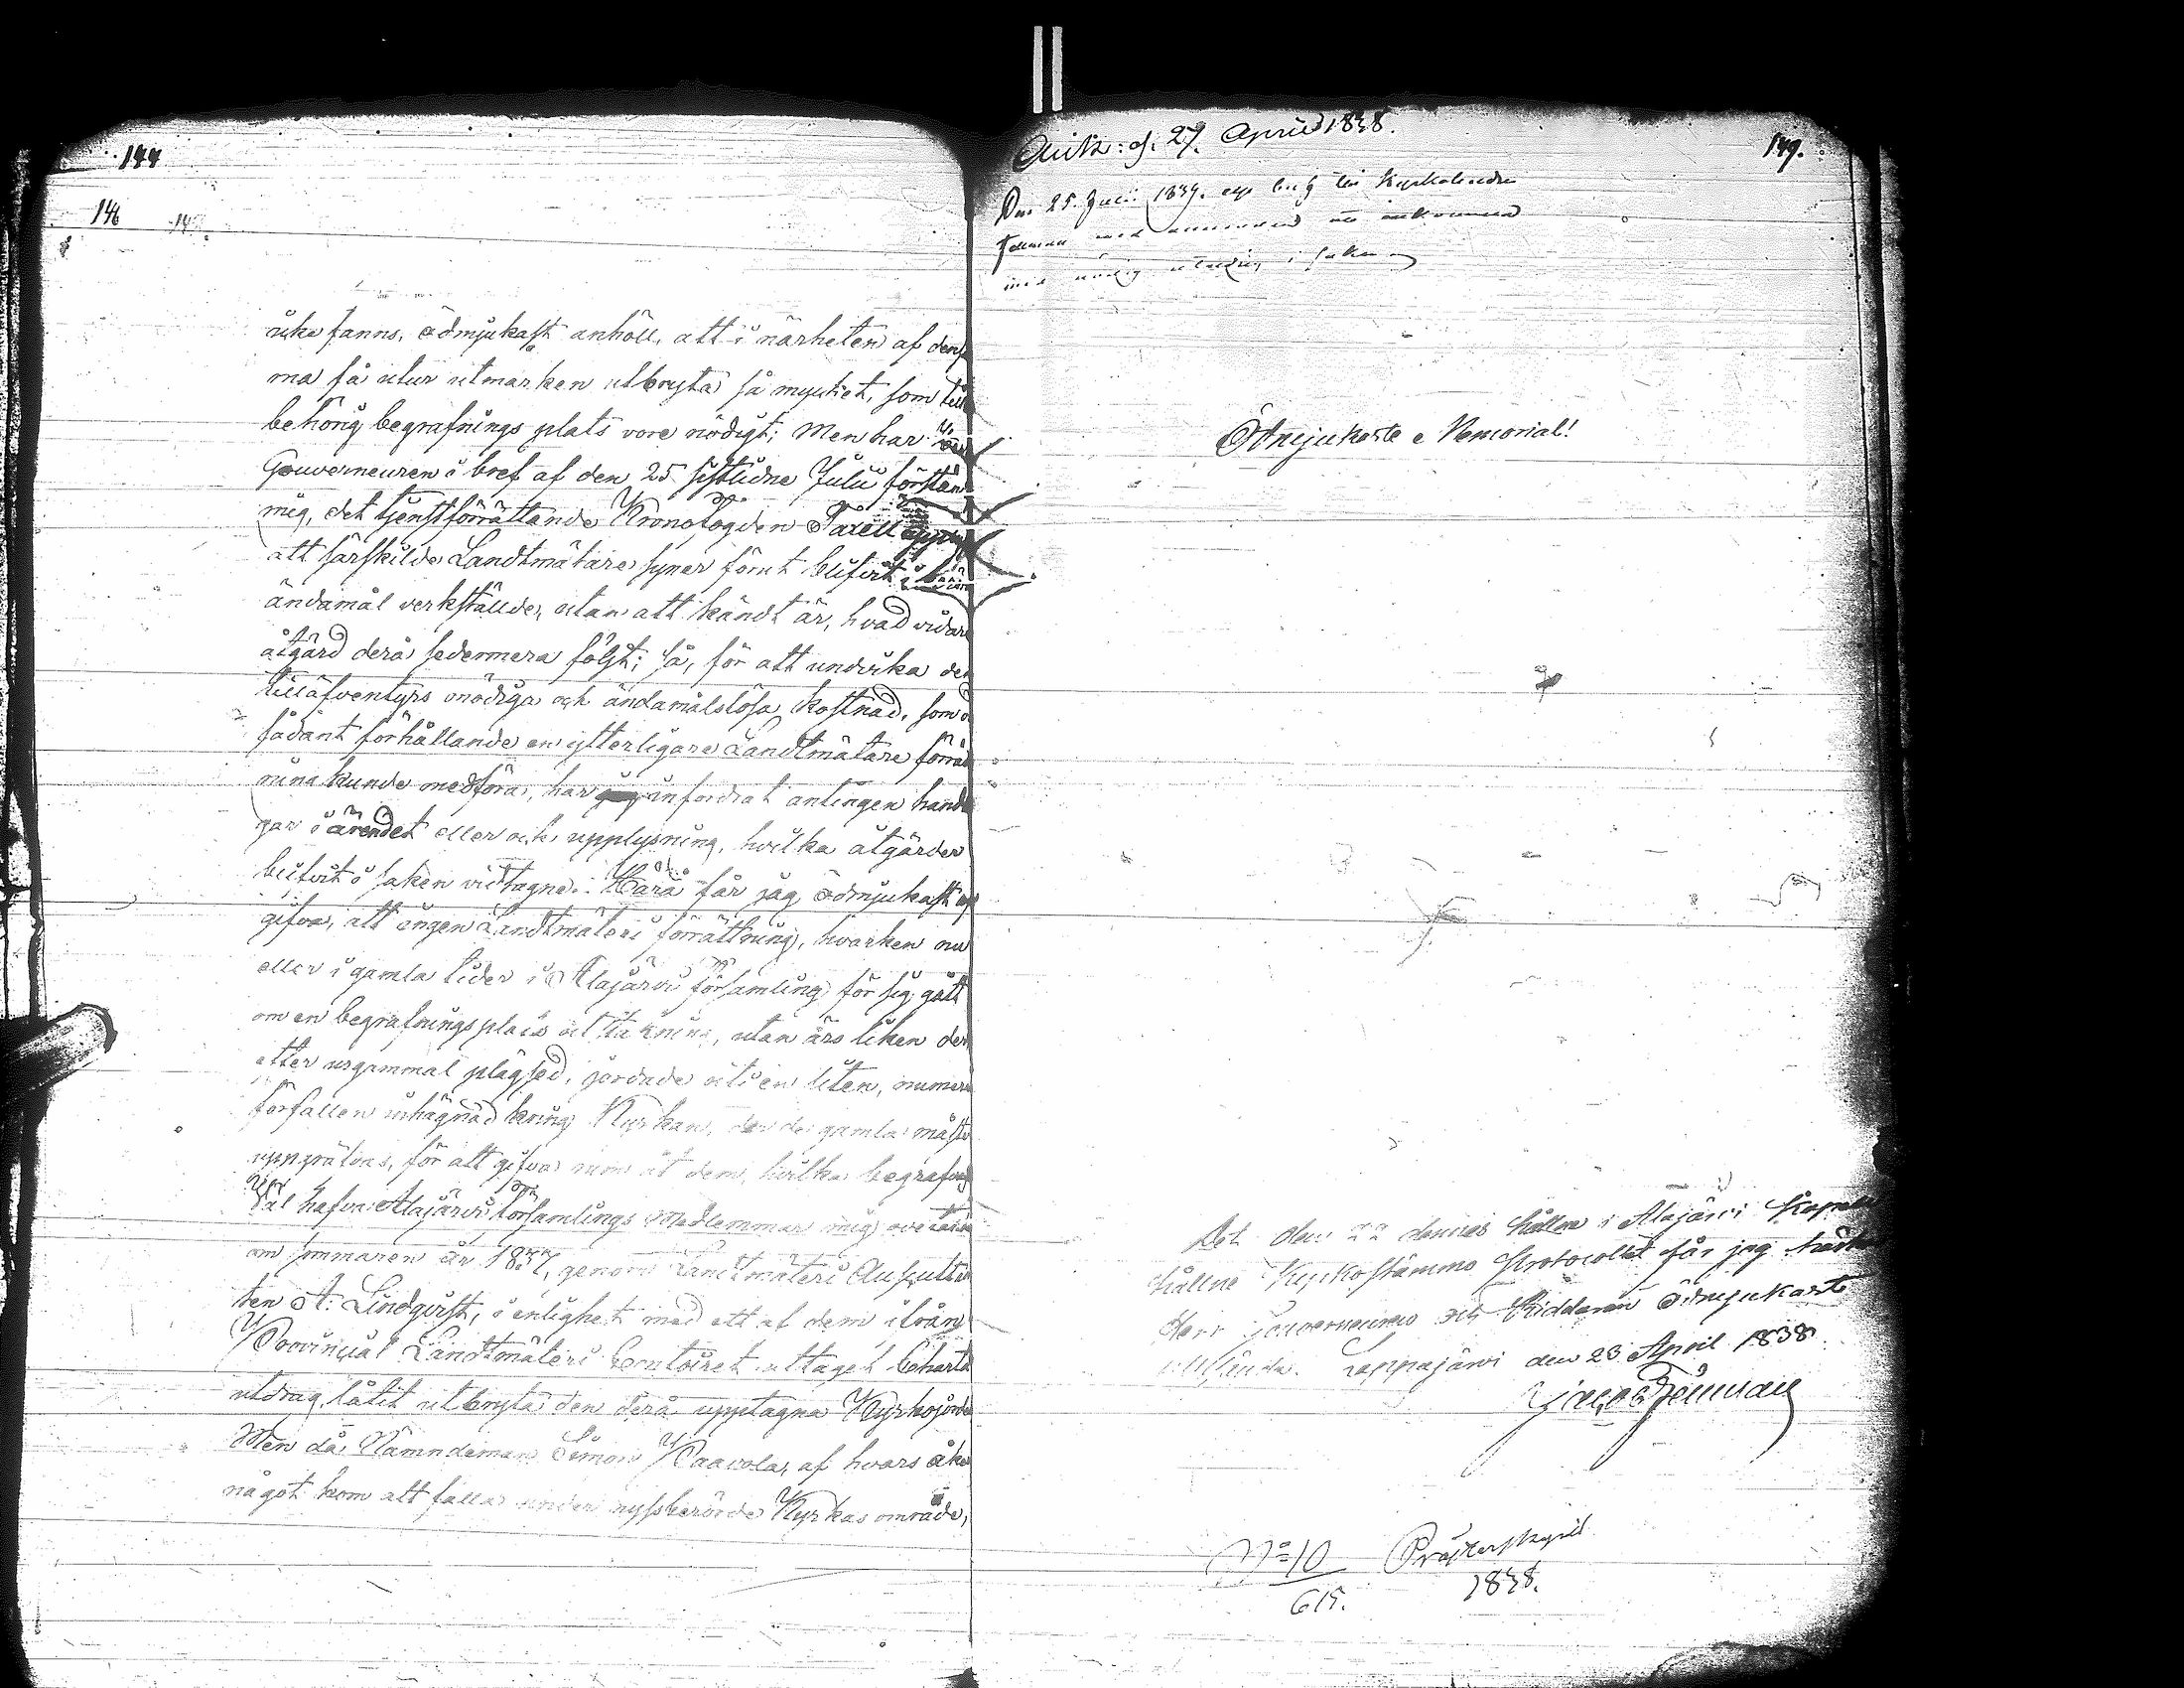 144
146
icke fanns, ödmjukast anhöll, att i närheten af densa
ma få utur utmarken utbryta så mycket, som till
behörig begrafnings plats vore nödigt; Men har Herr
Gouverneuren i bref af den 25 sistlidne Julii förständ
mig, det tjenstförrättande Kronofogden Forsell
att särskilde Landtmätare syner förut blifvit i
ändamål verkställde, utan att kändt är, hvad vidare
åtgärd derå sedermera följt; så, för att undvika den
tilläfventyrs onödiga och ändamålslösa kostnad, som
sådant förhållande en ytterligare Landtmätare förrätt
ning kunde medföra, har infordrat antingen handlin
gar i ärendet eller ock upplysning, hvilka åtgärder
blifvit i saken vidtagne. Härå får jag ödmjukast upp
gifva, att ingen Landtmäteri förrättning, hvarken nu
eller i gamla tider i Alajärvi församling för sig gått
om en begrafningsplats uttäkning, utan äro liken der,
efter urgammal plägsed, jordade uti en liten, numera
förfallen inhägnad kring Kyrkan, der de gamla måste
uppgräfvas, för att gifva rum åt dem, hvilka begrafvas
Väl hafva Alajärvi Församlings Medlemmar mig ovetande
om sommaren år 1837, genom Landtmäteri Auscultan
ten A. Lindqvist, i enlighet med ett af dem ifrån
Provincial Landtmäteri Contoiret uttaget Charte
utdrag låtit utbryta den derå upptagna Kyrkojorden
Men då Nämndeman Simon Paavola, af hvars åker
något kom att falla under nyssberörde Kyrkas område,
Ank: d. 27. April 1838.
149.
Den 25. Julii 1839.
Ödmjukaste Memorial!
Det den 22 dennes hållne i Alajärvi Kapell
hållne Kyrkostämmo Protocollet får jag härhos
Herr Gouverneuren och Riddaren ödmjukast
tillsända. Lappajärvi den 23 April 1838.
Jacob Fellman
N:o 10
615.
Prästerskapet
1838.